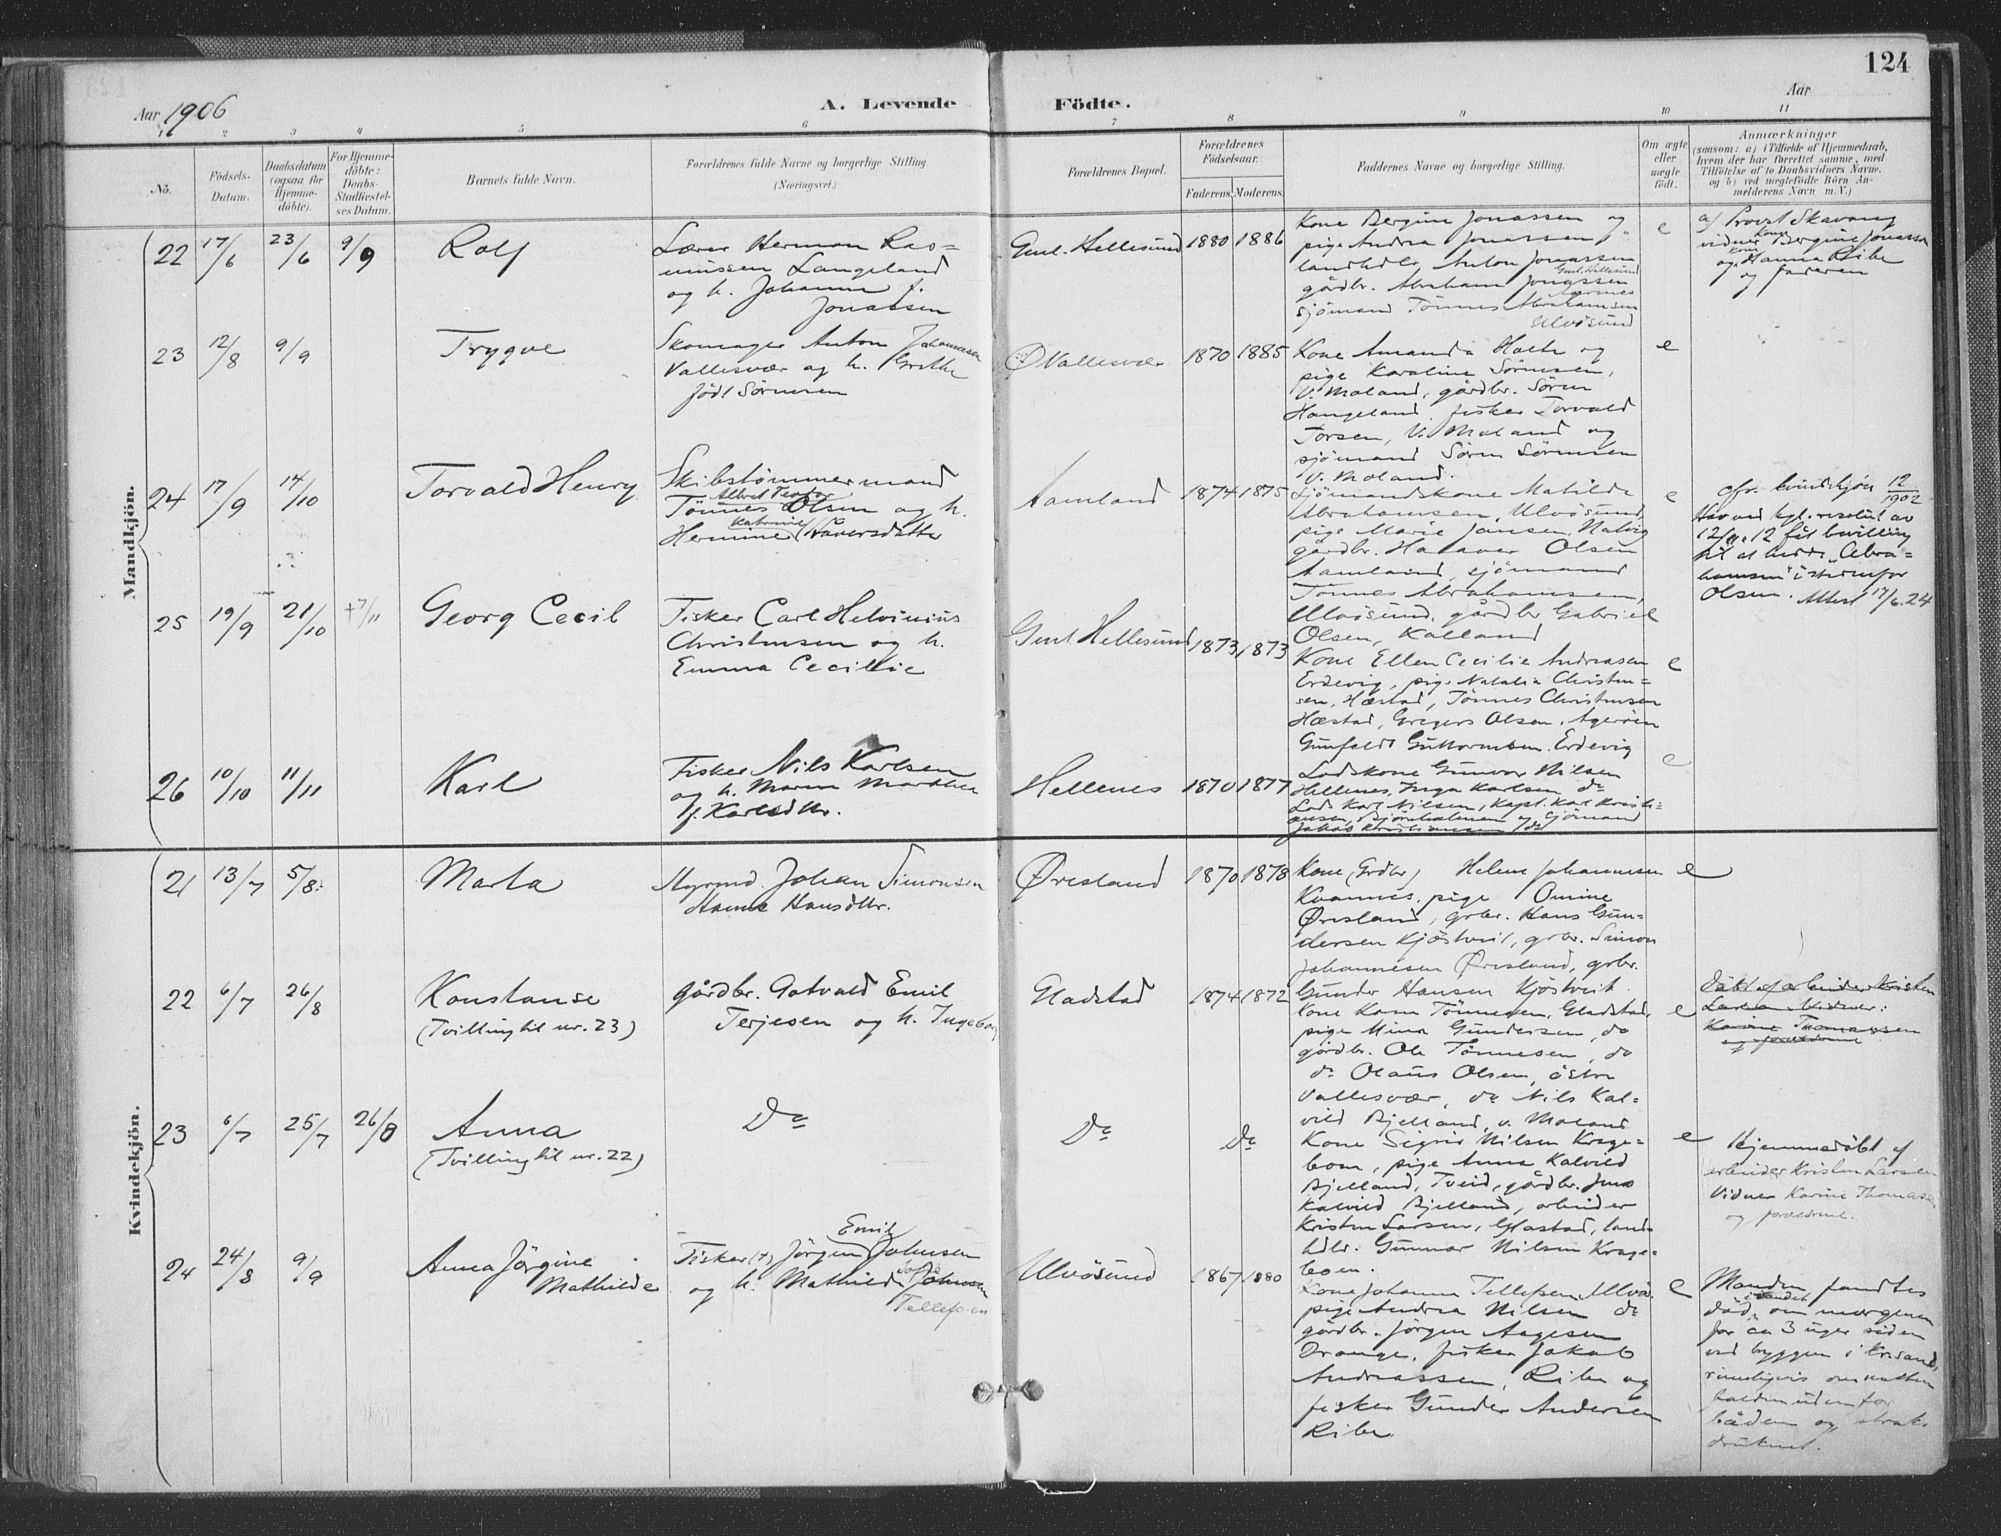 124
Aar 1906
A. Levende Födte.
Aar
1 2 3 4 5 6 7 8 9 10 11
No.
Födsels-Datum.
Daabsdatum (ogsaa for Hjemme-döbte).
For Hjemme-döbte: Daabs-Stadfæstel-ses Datum.
Barnets fulde Navn.
Forældrenes fulde Navne og borgerlige Stilling.
(Næringsvei.)
Forældrenes Bopæl.
Forældrenes Födselsaar.
Faderens. Moderens.
Faddernes Navne og borgerlige Stilling.
Om ægte eller uægte födt.
Anmærkninger
(saasom: a) i Tilfælde af Hjemmedaab,
hvem der har forrettet samme, med
Tilföielse af to Daabsvidners Navne.
og b) ved uægtefödte Börn, An-
melderens Navn m.V.)
Mandkjön.
22 17/6 23/6 9/9 Rolf
Lærer Herman Ras=
mussen Langeland
og h. Johanne f.
Jonassen
Gml. Hellesund 1880 1886
Kone Bergine Jonassen og
pige Andrea Jonassen,
landhdlr. Anton Jonassen
Gml. Hellesund
gårdbr. Abraham Jonassen
sjömand Tönnes Abrahamsen
Ulvösund
e
a) Provst Skavang
vidner kone Bergine Jonassen
og kone Hanna Ribe
og faderen
23 12/8 9/9 Trygve
Skomager Anton Johannesen
Vallesvær og h. Grethe
födt Sörensen
Ø Vallesvær 1870 1885
Kone Amanda Holte og
pige Karoline Sörensen,
V. Moland, gårdbr. Sören
Haugeland, fisker Torvald
Torsen, V. Moland og
sjömand Sören Sörensen
V. Moland.
e
24 17/9 14/10 Torvald Henry
Skibstömmermand
Albert Teodor
Tönnes Olsen og h.
Katrine
Hermine Håversdatter
Aamland 1874 1875
Sjömandskone Matilde
Abrahamsen, Ulvösund,
pige Marie Jansen, Natvig
gårdbr. Haaver Olsen
Aamland, sjömand
Tönnes Abrahamsen,
Ulvösund, gårdbr Gabriel
Olsen, Kalland
e
cfr. kvindekjön 12/1902
Har ved kgl. resolut. av
12/4.12 fåt bevilling
til at hedde "Abra=
hamsen" istedenfor
Olsen. Attest 17/6.24
25 19/9 21/10 +7/11 Georg Cecil
Fisker Carl Helvinius
Christensen og h.
Emma Cecilie
Gml Hellesund 1873 1873
Kone Ellen Cecilie Andreasen
Erdevig, pige Natalia Christen=
sen, Hæstad, Tönnes Christensen
Hæstad, Gregers Olsen, Agerøen
Gunfeldt Guttormsen, Erdevig
e
26 10/10 11/11 Karl
Fisker Nils Karlsen
og h. Maren Marthea
f. Karlsdtr.
Hellenes 1870 1877
Lodskone Gunvor Nilsen
Hellenes, Inga Karlsen do
Lods Karl Nilsen, Kapt. Karl Kristi=
ansen, Björnholmen og Sjömand
Jakob Kristiansen do
e
Kvindekjön.
21 13/7 5/8. Marta
Myrmd. Johan Simonsen
Hanne Hansdtr.
Øresland 1870 1878
Kone (Grdbr) Helene Johannesen
Kvannes, pige Omine
Øresland, grbr. Hans Gun=
dersen Kjöstveit, grbr. Simon
Johannesen Øresland, grbr.
Gunder Hansen Kjöstveit.
e
22 6/7 26/8 Konstanse
(Tvilling til nr. 23)
gårdbr. Gotvald Emil
Terjesen og h. Ingeborg
Gladstad 1874 1872
Kone Karn Tönnesen, Gladstad,
pige Mina Gundersen, do
gårdbr. Ole Tönnesen, do
do Olaus Olsen, östre
Vallesvær, do Nils Kal=
vild Bjelland, v. Moland
e
Döbt af arbeider Kristen
Larsen. Vidner:
Karine Thomassen
og forældrene
23 6/7 25/7 26/8 Anna
(Tvilling til nr. 22)
Do
Do Do
Kone Sigrid Nilsen Krage=
boen, pige Anna Kalvild
Bjelland, Tveid, gårdbr. Jens
Kalvild Bjelland, arbeider
Kristen Larsen, Glastad, land=
hdlr. Gunnar Nilsen Krage=
boen.
e
Hjemmedöbt af
arbeider Kristen Larsen
Vidner Karine Thomassen
og forældrene.
24 24/8 9/9 Anna Jörgine
Mathilde
Emil
Fisker (+) Jörgen Johnsen
og h. Mathilde Johnsen
Tellefsen
Ulvösund 1867 1880
Kone Johanna Tellefsen, Ulvö.
pige Andrea Nilsen do
gårdbr. Jörgen Aagesen
Drange, fisker Jakob
Andreassen, Ribe og
fisker Gunder Andersen
Ribe
e
Manden fandtes
död i vandet om morgenen
for ca 3 uger siden
ved bryggen i Krsand,
rimeligvis om natten
falden udenfor
båden og straks
druknet.